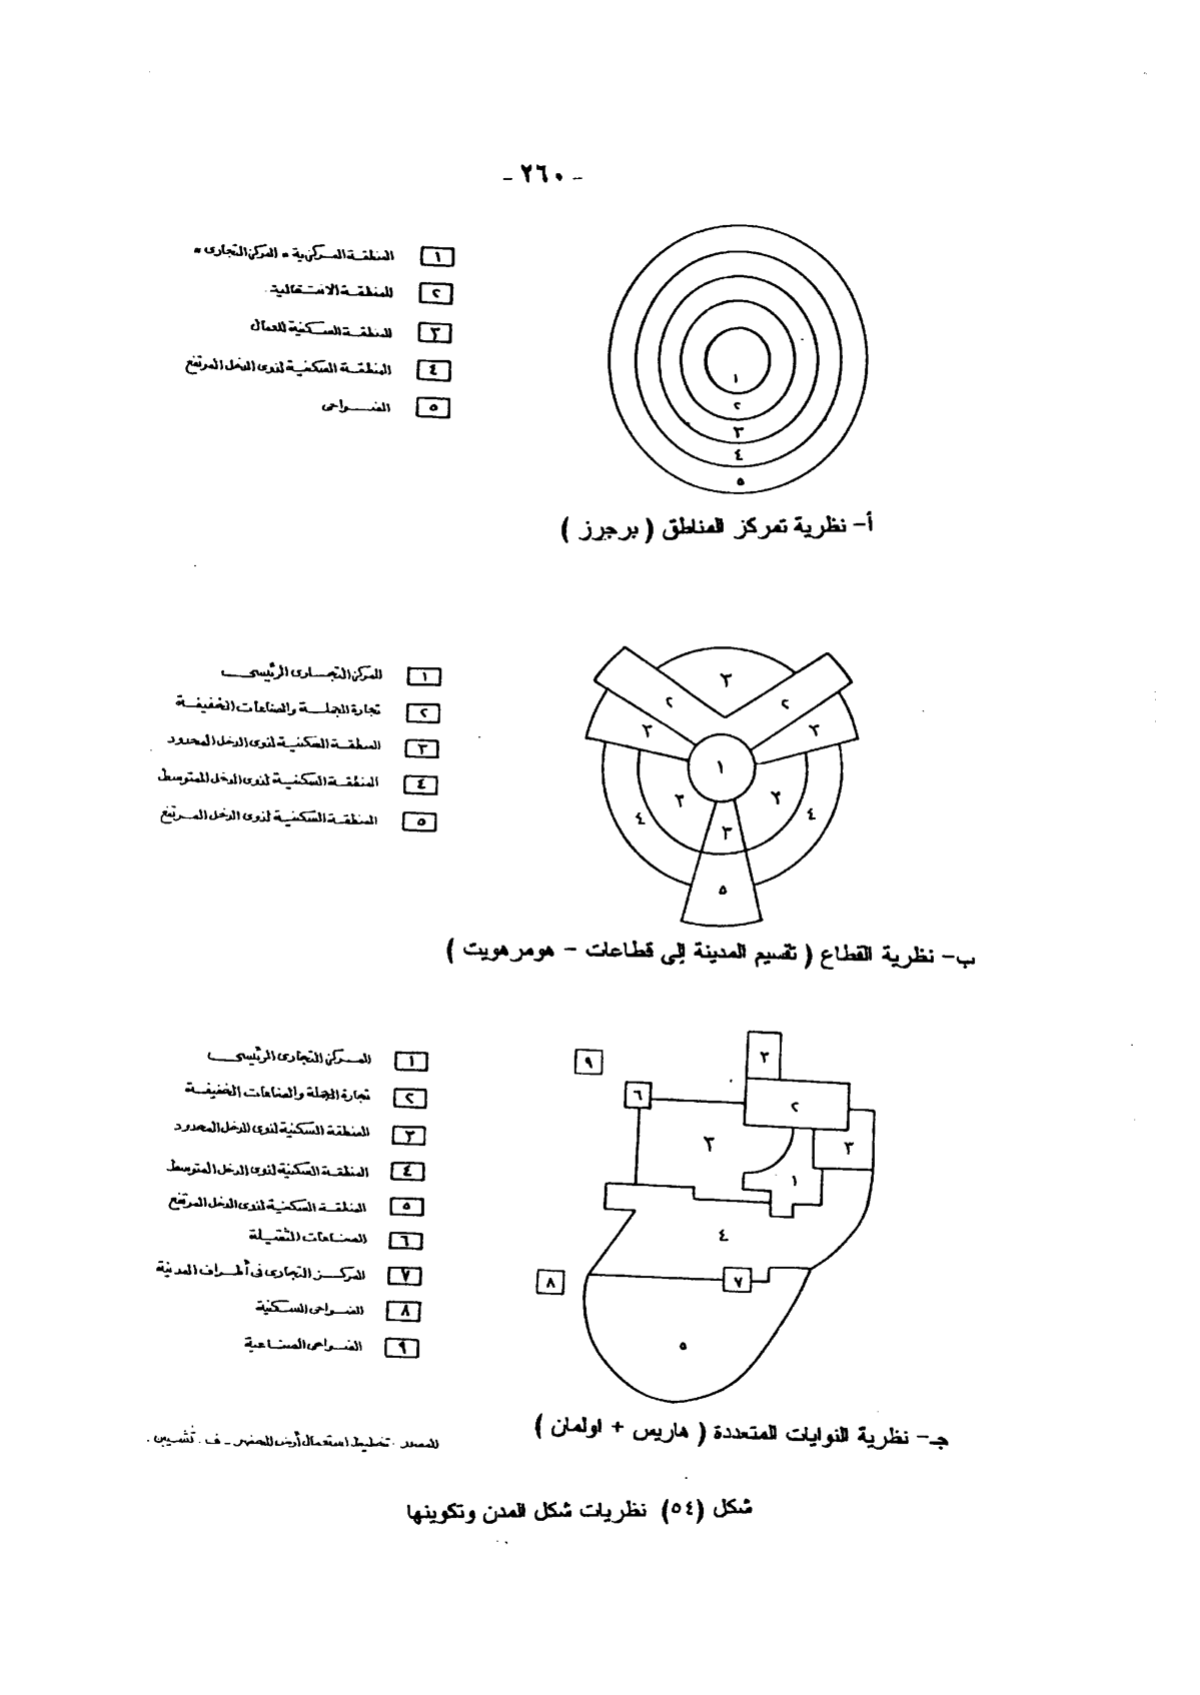 - ٢٦٠ -
١ المنطقة المركزية " المركز التجارى "
٢ المنطقة الانتقالية
٣ المنطقة السكنية للعمال
٤ المنطقة السكنية لذوى الدخل المرتفع
٥ الضواحى
١
٢
٣
٤
٥
أ- نظرية تمركز المناطق ( برجرز )
١ المركز التجارى الرئيسى
٢ تجارة الجملة والصناعات الخفيفة
٣ المنطقة السكنية لذوى الدخل المحدود
٤ المنطقة السكنية لذوى الدخل المتوسط
٥ المنطقة السكنية لذوى الدخل المرتفع
٣
٢ ٢
٣ ٣
١
٣ ٣
٤ ٣ ٤
٥
ب- نظرية القطاع ( تقسيم المدينة إلى قطاعات - هومرهويت )
١ المركز التجارى الرئيسى
٢ تجارة الجملة والصناعات الخفيفة
٣ المنطقة السكنية لذوى الدخل المحدود
٤ المنطقة السكنية لذوى الدخل المتوسط
٥ المنطقة السكنية لذوى الدخل المرتفع
٦ الصناعات الثقيلة
٧ المركز التجارى فى أطراف المدينة
٨ الضواحى السكنية
٩ الضواحى الصناعية
٩ ٣
٦ ٢
٣ ٣
١
٤
٨ ٧
٥
جـ- نظرية النوايات المتعددة ( هاريس + اولمان )
المصدر . تخطيط استعمال أرض الحضر - ف . تشيبن .
شكل (٥٤) نظريات شكل المدن وتكوينها